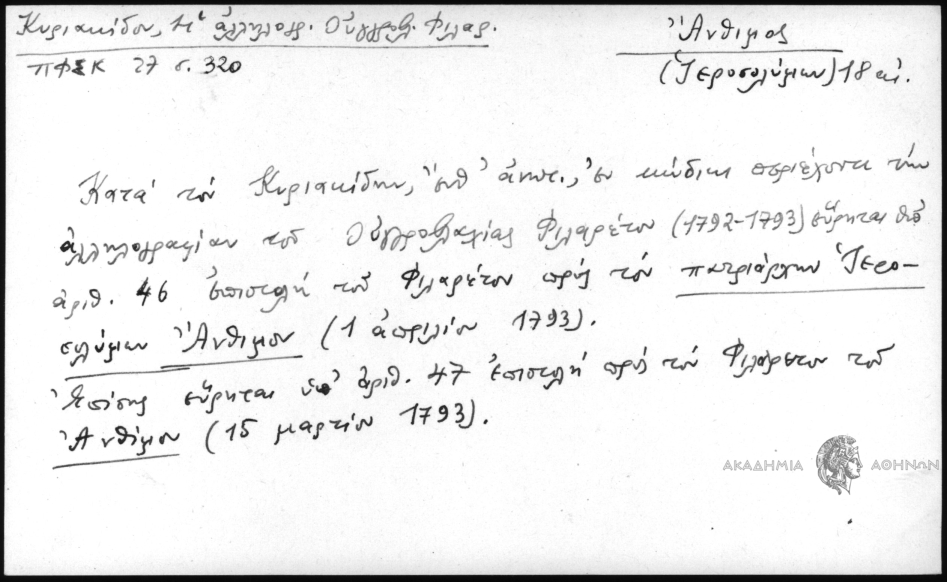 Κυριακίδου, Ἡ ἀλληλογρ. Οὑγγροβλ. Φιλαρ.
ΠΦΣΚ 27 σ. 320
Ἄνθιμος
(Ἱεροσολύμων) 18 αἰ.
Κατά τόν Κυριακίδην, ἔνθ' ἀνωτ., ἐν κώδικι περιέχοντι τήν
ἀλληλογραφίαν τοῦ Οὑγγροβλαχίας Φιλαρέτου (1792-1793) εὕρηται ὑπ'
ἀριθ. 46 ἐπιστολή τοῦ Φιλαρέτου πρός τόν πατριάρχην Ἱερο-
σολύμων Ἄνθιμον (1 ἀπριλίου 1793).
Ἐπίσης εὕρηται ὑπ' ἀριθ. 47 ἐπιστολή πρός τόν Φιλάρετον τοῦ
Ἀνθίμου (15 μαρτίου 1793).
ΑΚΑΔΗΜΙΑ ΑΘΗΝΩΝ